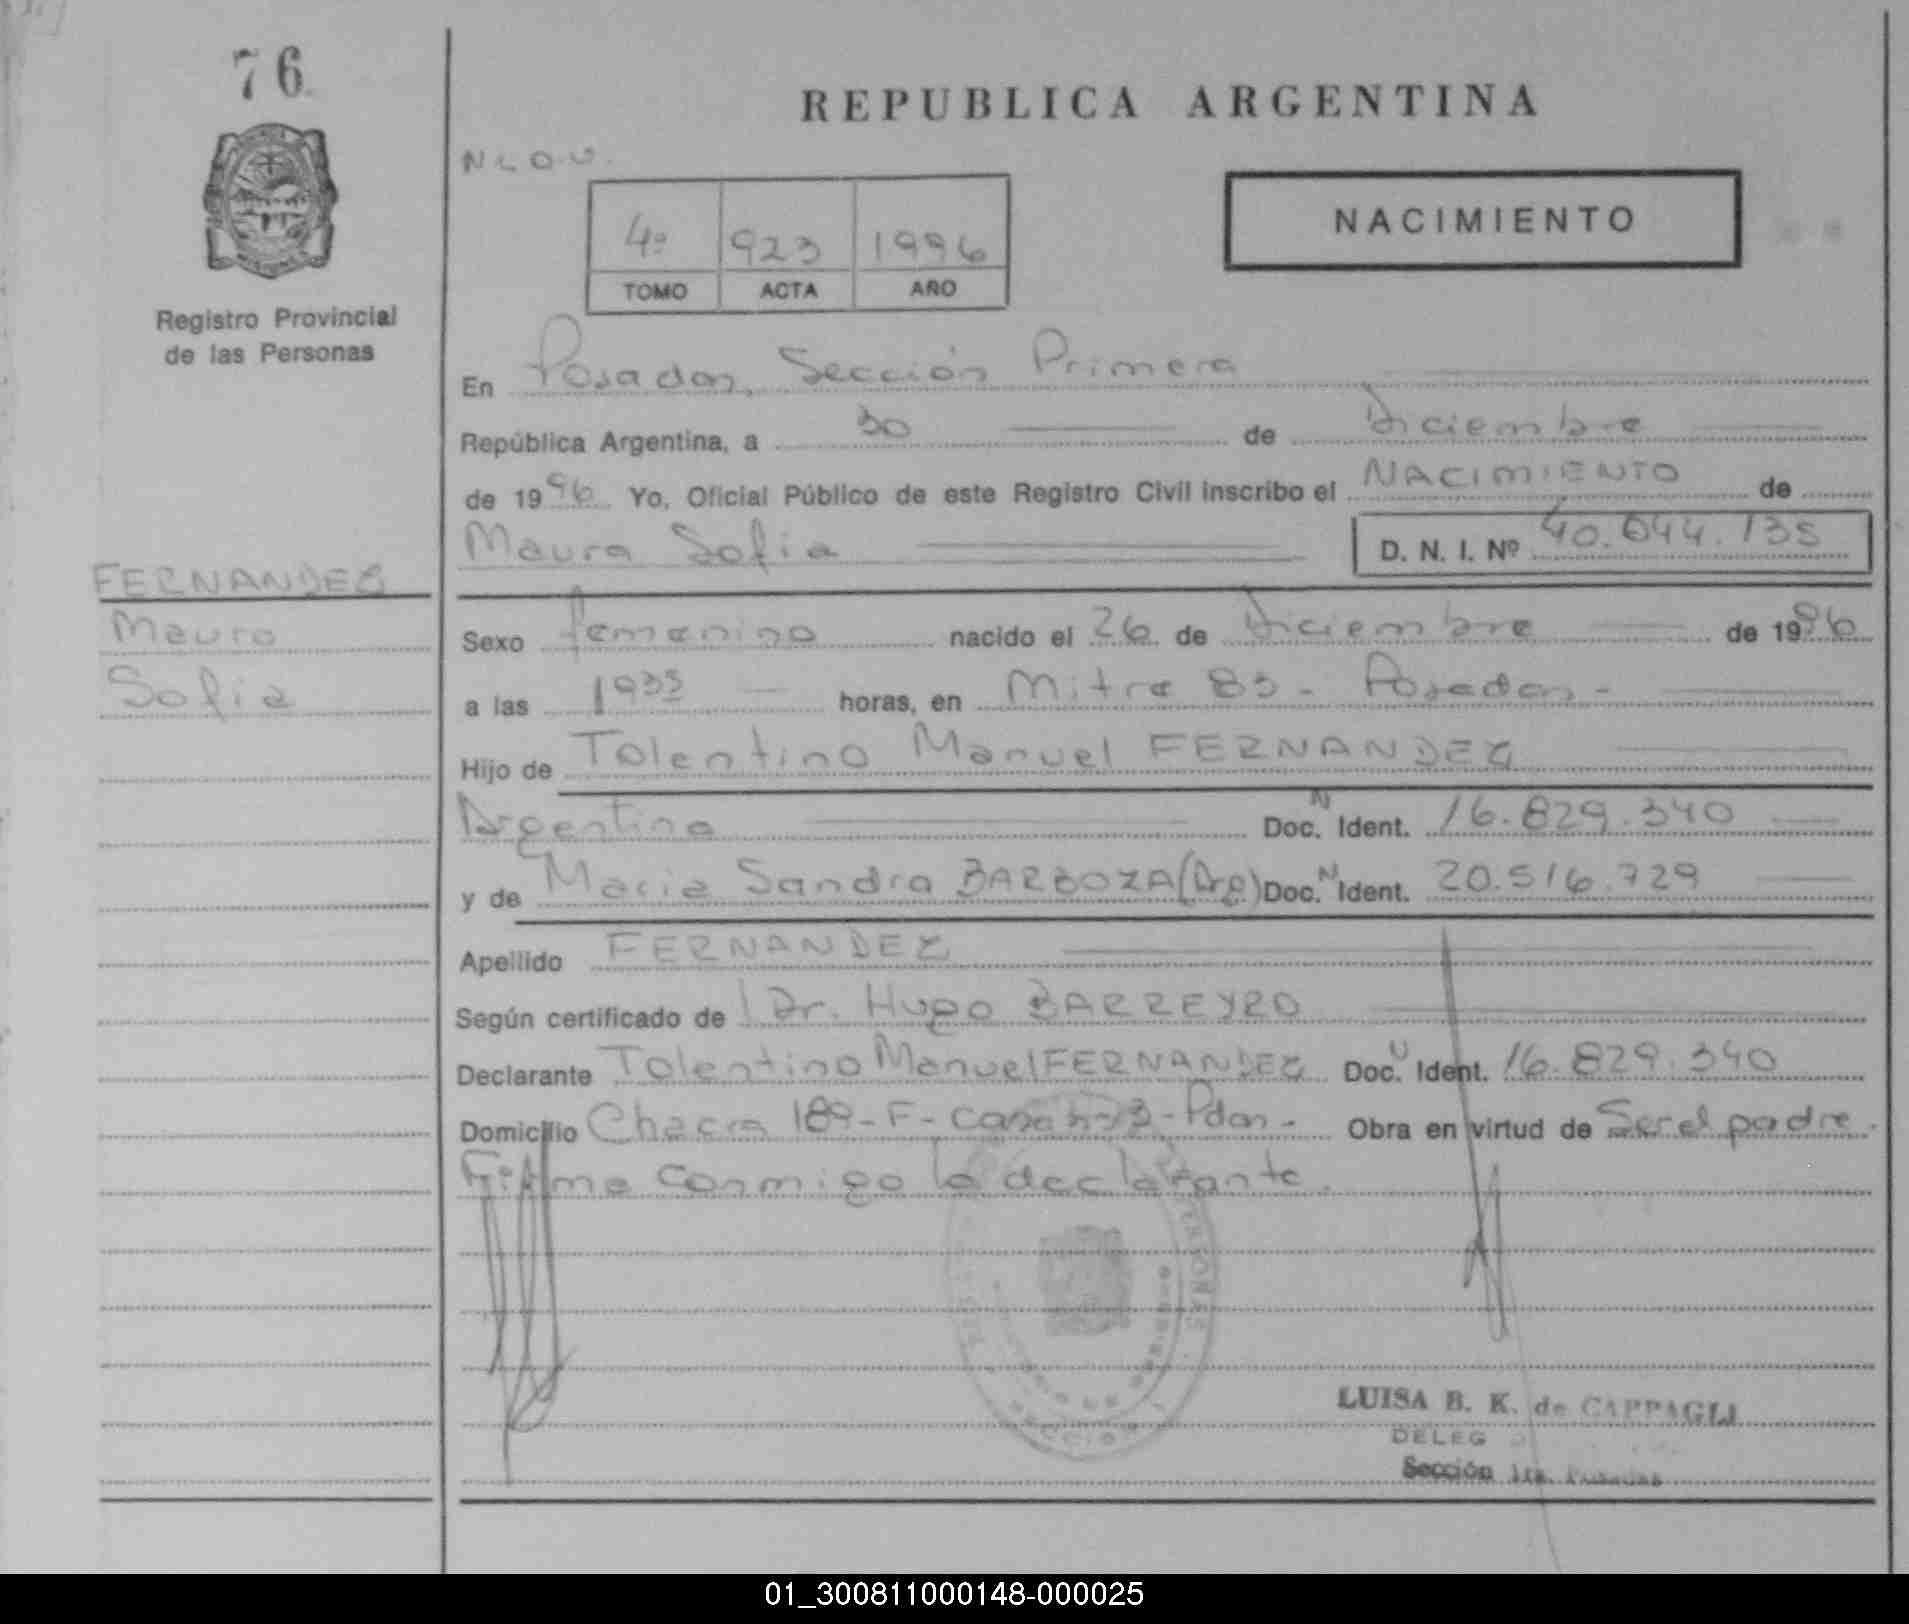 76
REPUBLICA ARGENTINA
N L O.U.
NACIMIENTO
4º 923 1996
TOMO ACTA AÑO
Registro Provincial
de las Personas
En Posadas, Sección Primera
República Argentina, a 30 de Diciembre
de 1996 Yo, Oficial Público de este Registro Civil inscribo el NACIMIENTO de
Maura Sofia D. N. I. Nº 40.044.135
FERNANDEZ
Maura
Sofia
Sexo femenino nacido el 26 de Diciembre de 1996
a las 1935 horas, en Mitre 83 - Posadas -
Hijo de Tolentino Manuel FERNANDEZ
Argentino Doc. N Ident. 16.829.340
y de Maria Sandra BARBOZA (Arg) Doc. N Ident. 20.516.729
Apellido FERNANDEZ
Según certificado de Dr. Hugo BARREYRO
Declarante Tolentino Manuel FERNANDEZ Doc. U Ident. 16.829.340
Domicilio Chacra 189 - F - casa - 3 - Pdas - Obra en virtud de Ser el padre.
Firma conmigo la declarante.
LUISA B. K. de CAPPAGLI
DELEG
Sección 1ra. Posadas
01_300811000148-000025